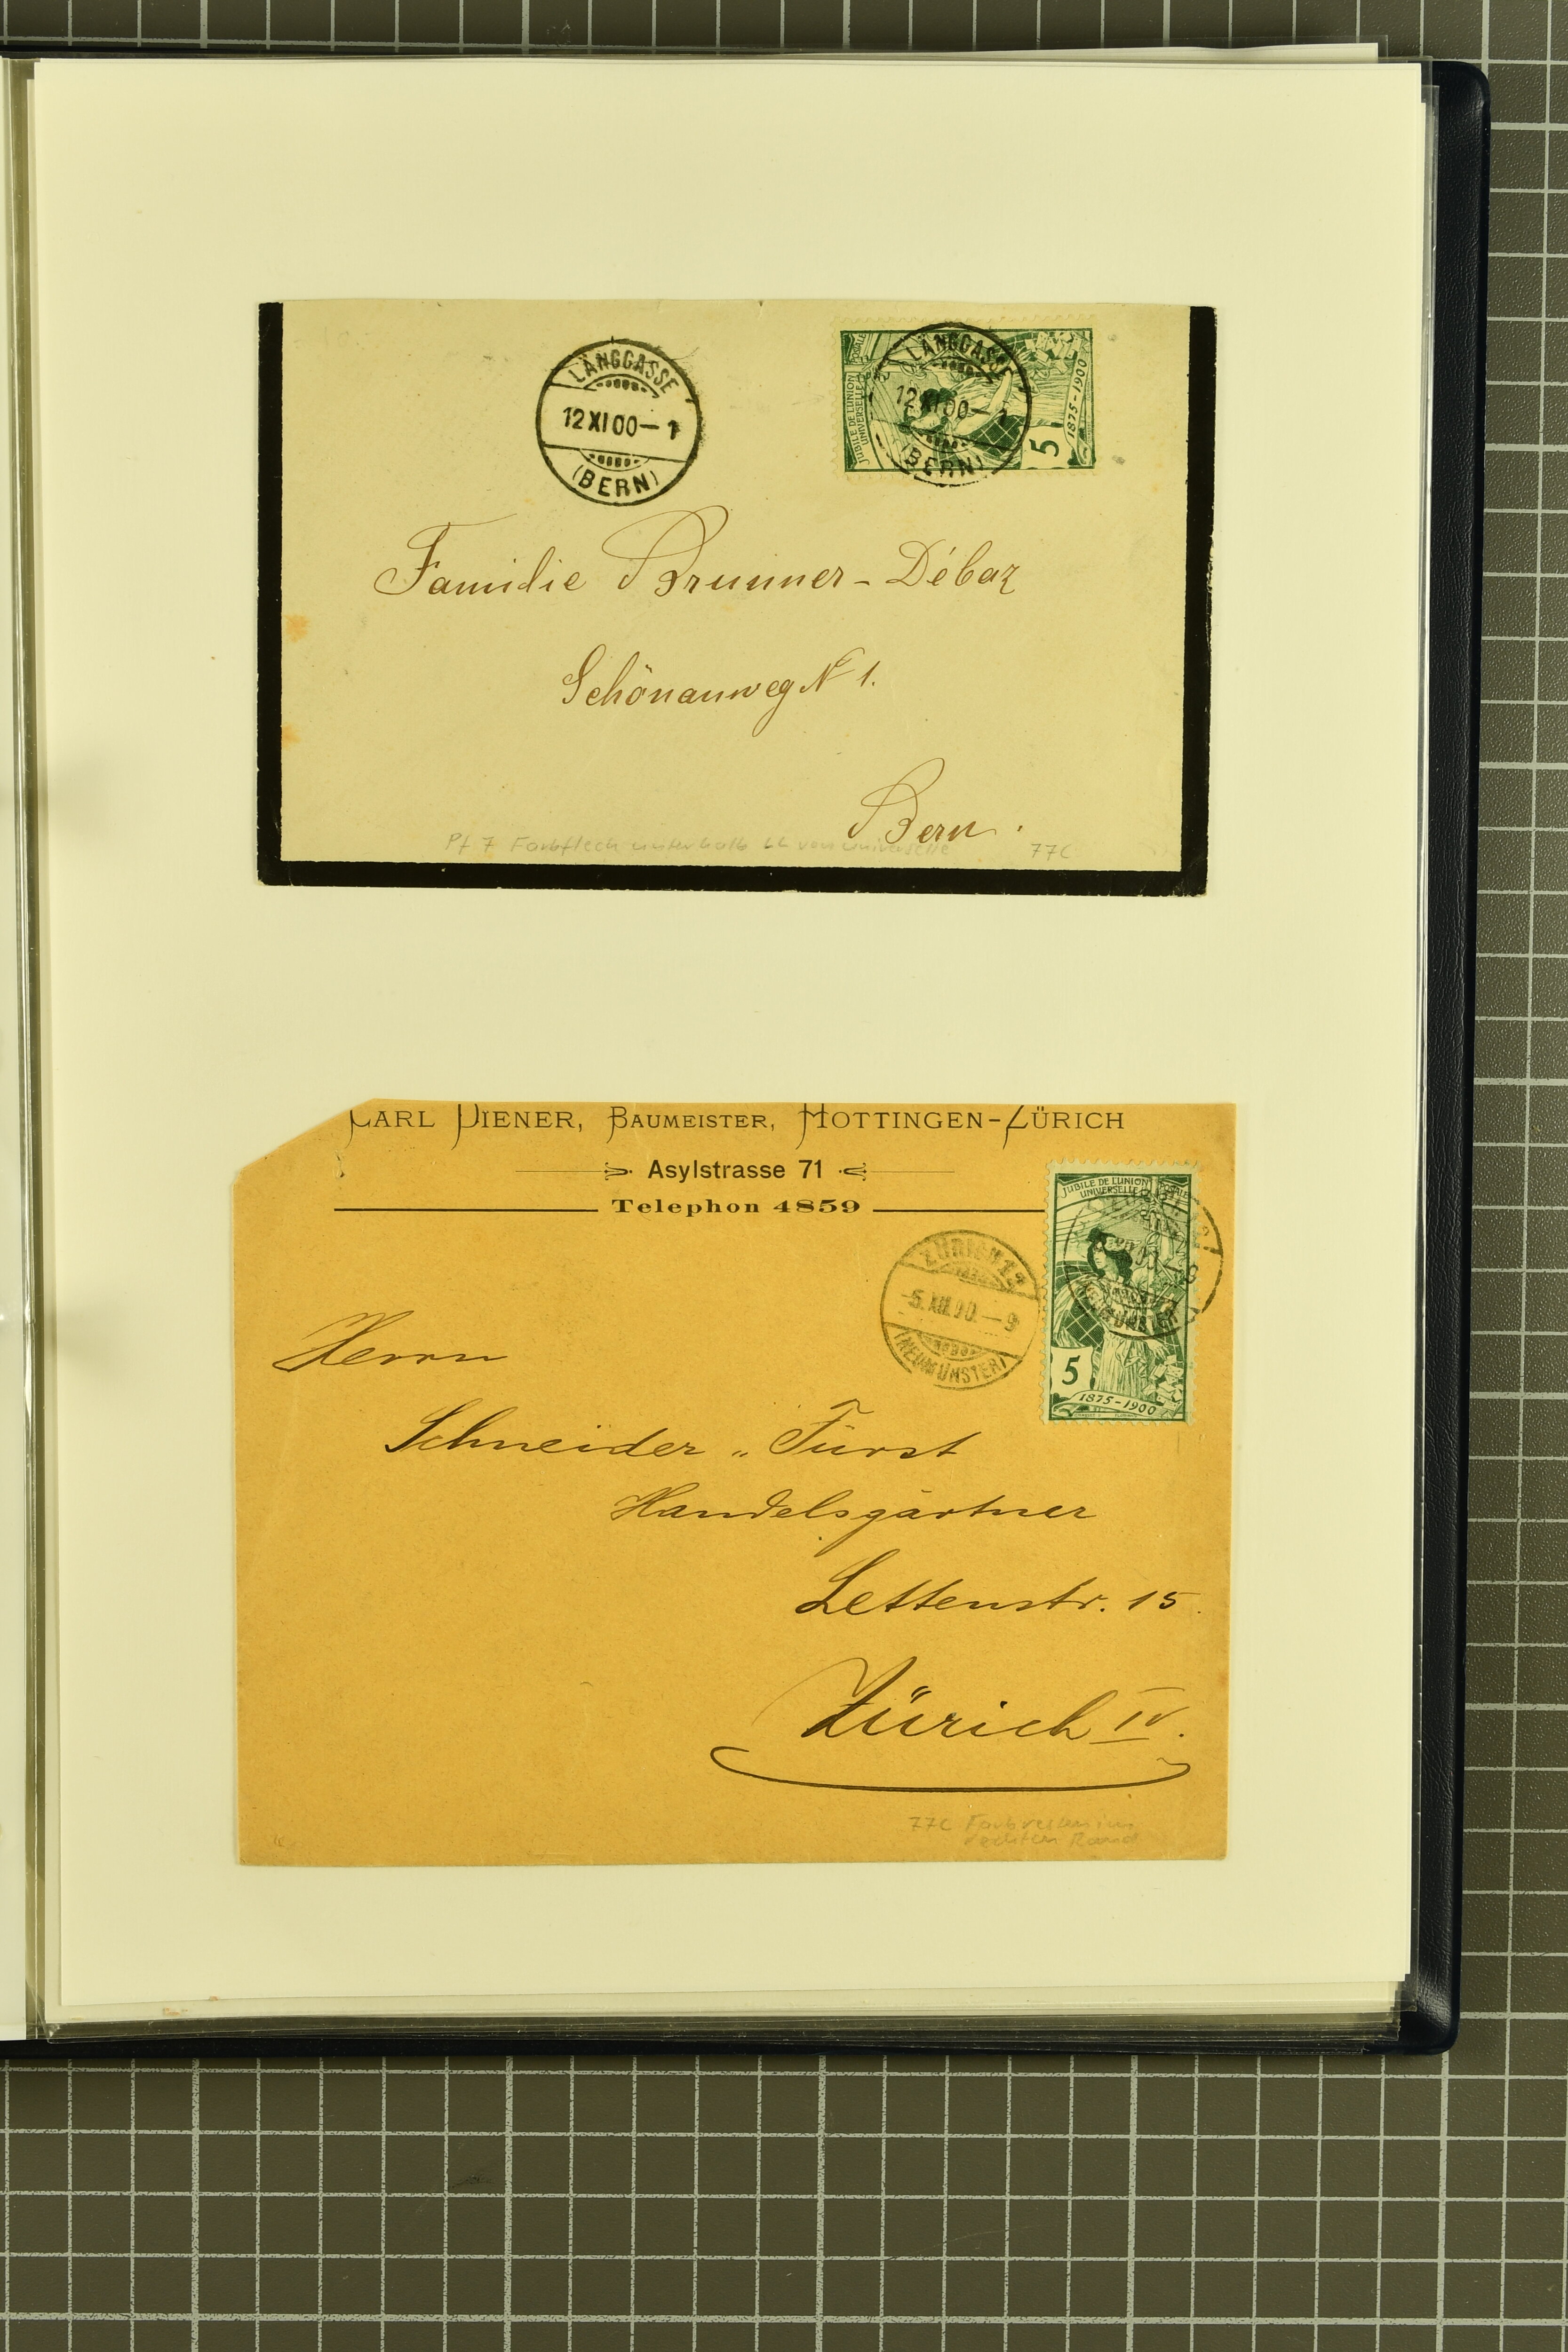 LÄNGGASSE
12 XI 00 – 1
(BERN)
JUBILE DE L'UNION POSTALE
UNIVERSELLE
5
1875 - 1900
LÄNGGASSE
12 XI 00 – 1
(BERN)
Familie Brunner-Débaz
Schönauweg No 1.
Bern.
Pf 7 Farbfleck unterhalb LL von universelle
77C
CARL DIENER, BAUMEISTER, HOTTINGEN-ZÜRICH
Asylstrasse 71
Telephon 4859
JUBILE DE L'UNION POSTALE
UNIVERSELLE
5
1875-1900
ZÜRICH
5. XII. 00. – 9
(NEUMÜNSTER)
Herrn
Schneider „ Fürst
Handelsgärtner
Lettenstr. 15.
Zürich IV.
77C Farbresten im
rechten Rand